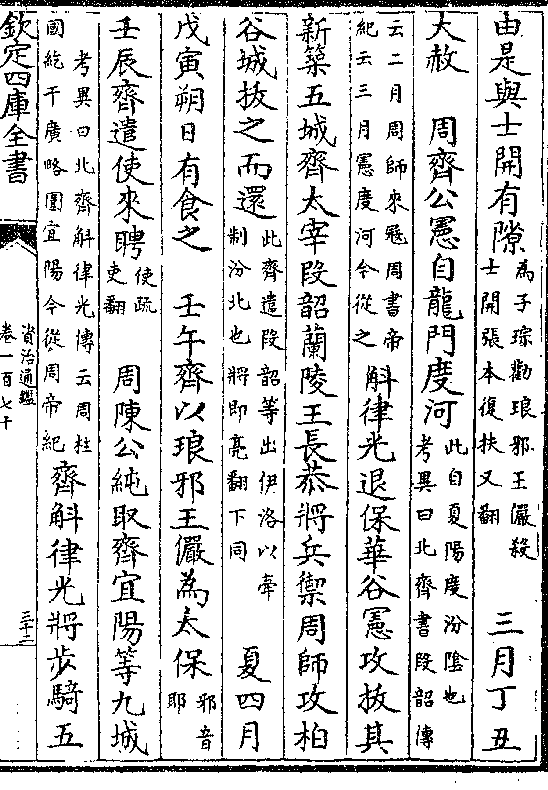 由是與士開有隙為子琮勸琅邪王儼殺士開張本復扶又翻 三月丁丑
大赦 周齊公憲自龍門度河此自夏陽度汾陰也考異曰北齊書段韶傳
云二月周師來冦周書帝紀云三月憲度河今從之斛律光退保華谷憲攻拔其
新築五城齊太宰段韶蘭陵王長恭將兵禦周師攻柏
谷城拔之而還此齊遣段韶等出伊洛以牽制汾北也將即亮翻下同 夏四月
戊寅朔日有食之 壬午齊以琅邪王儼為太保邪音耶
壬辰齊遣使來聘使疏吏翻 周陳公純取齊宜陽等九城
考異曰北齊斛律光傳云周柱國紇干廣略圍宜陽今從周帝紀齊斛律光將步騎五
欽定四庫全書
資治通鑑
卷一百七十
三十三